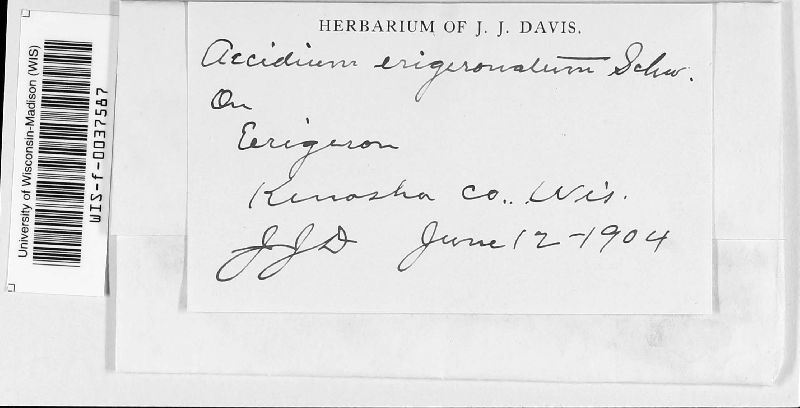 HERBARIUM OF J. J. DAVIS.
Aecidium erigeronatum Schw.
On
Erigeron
Kenosha Co., Wis.
JJD June 12-1904
University of Wisconsin-Madison (WIS)
WIS-f-0037587